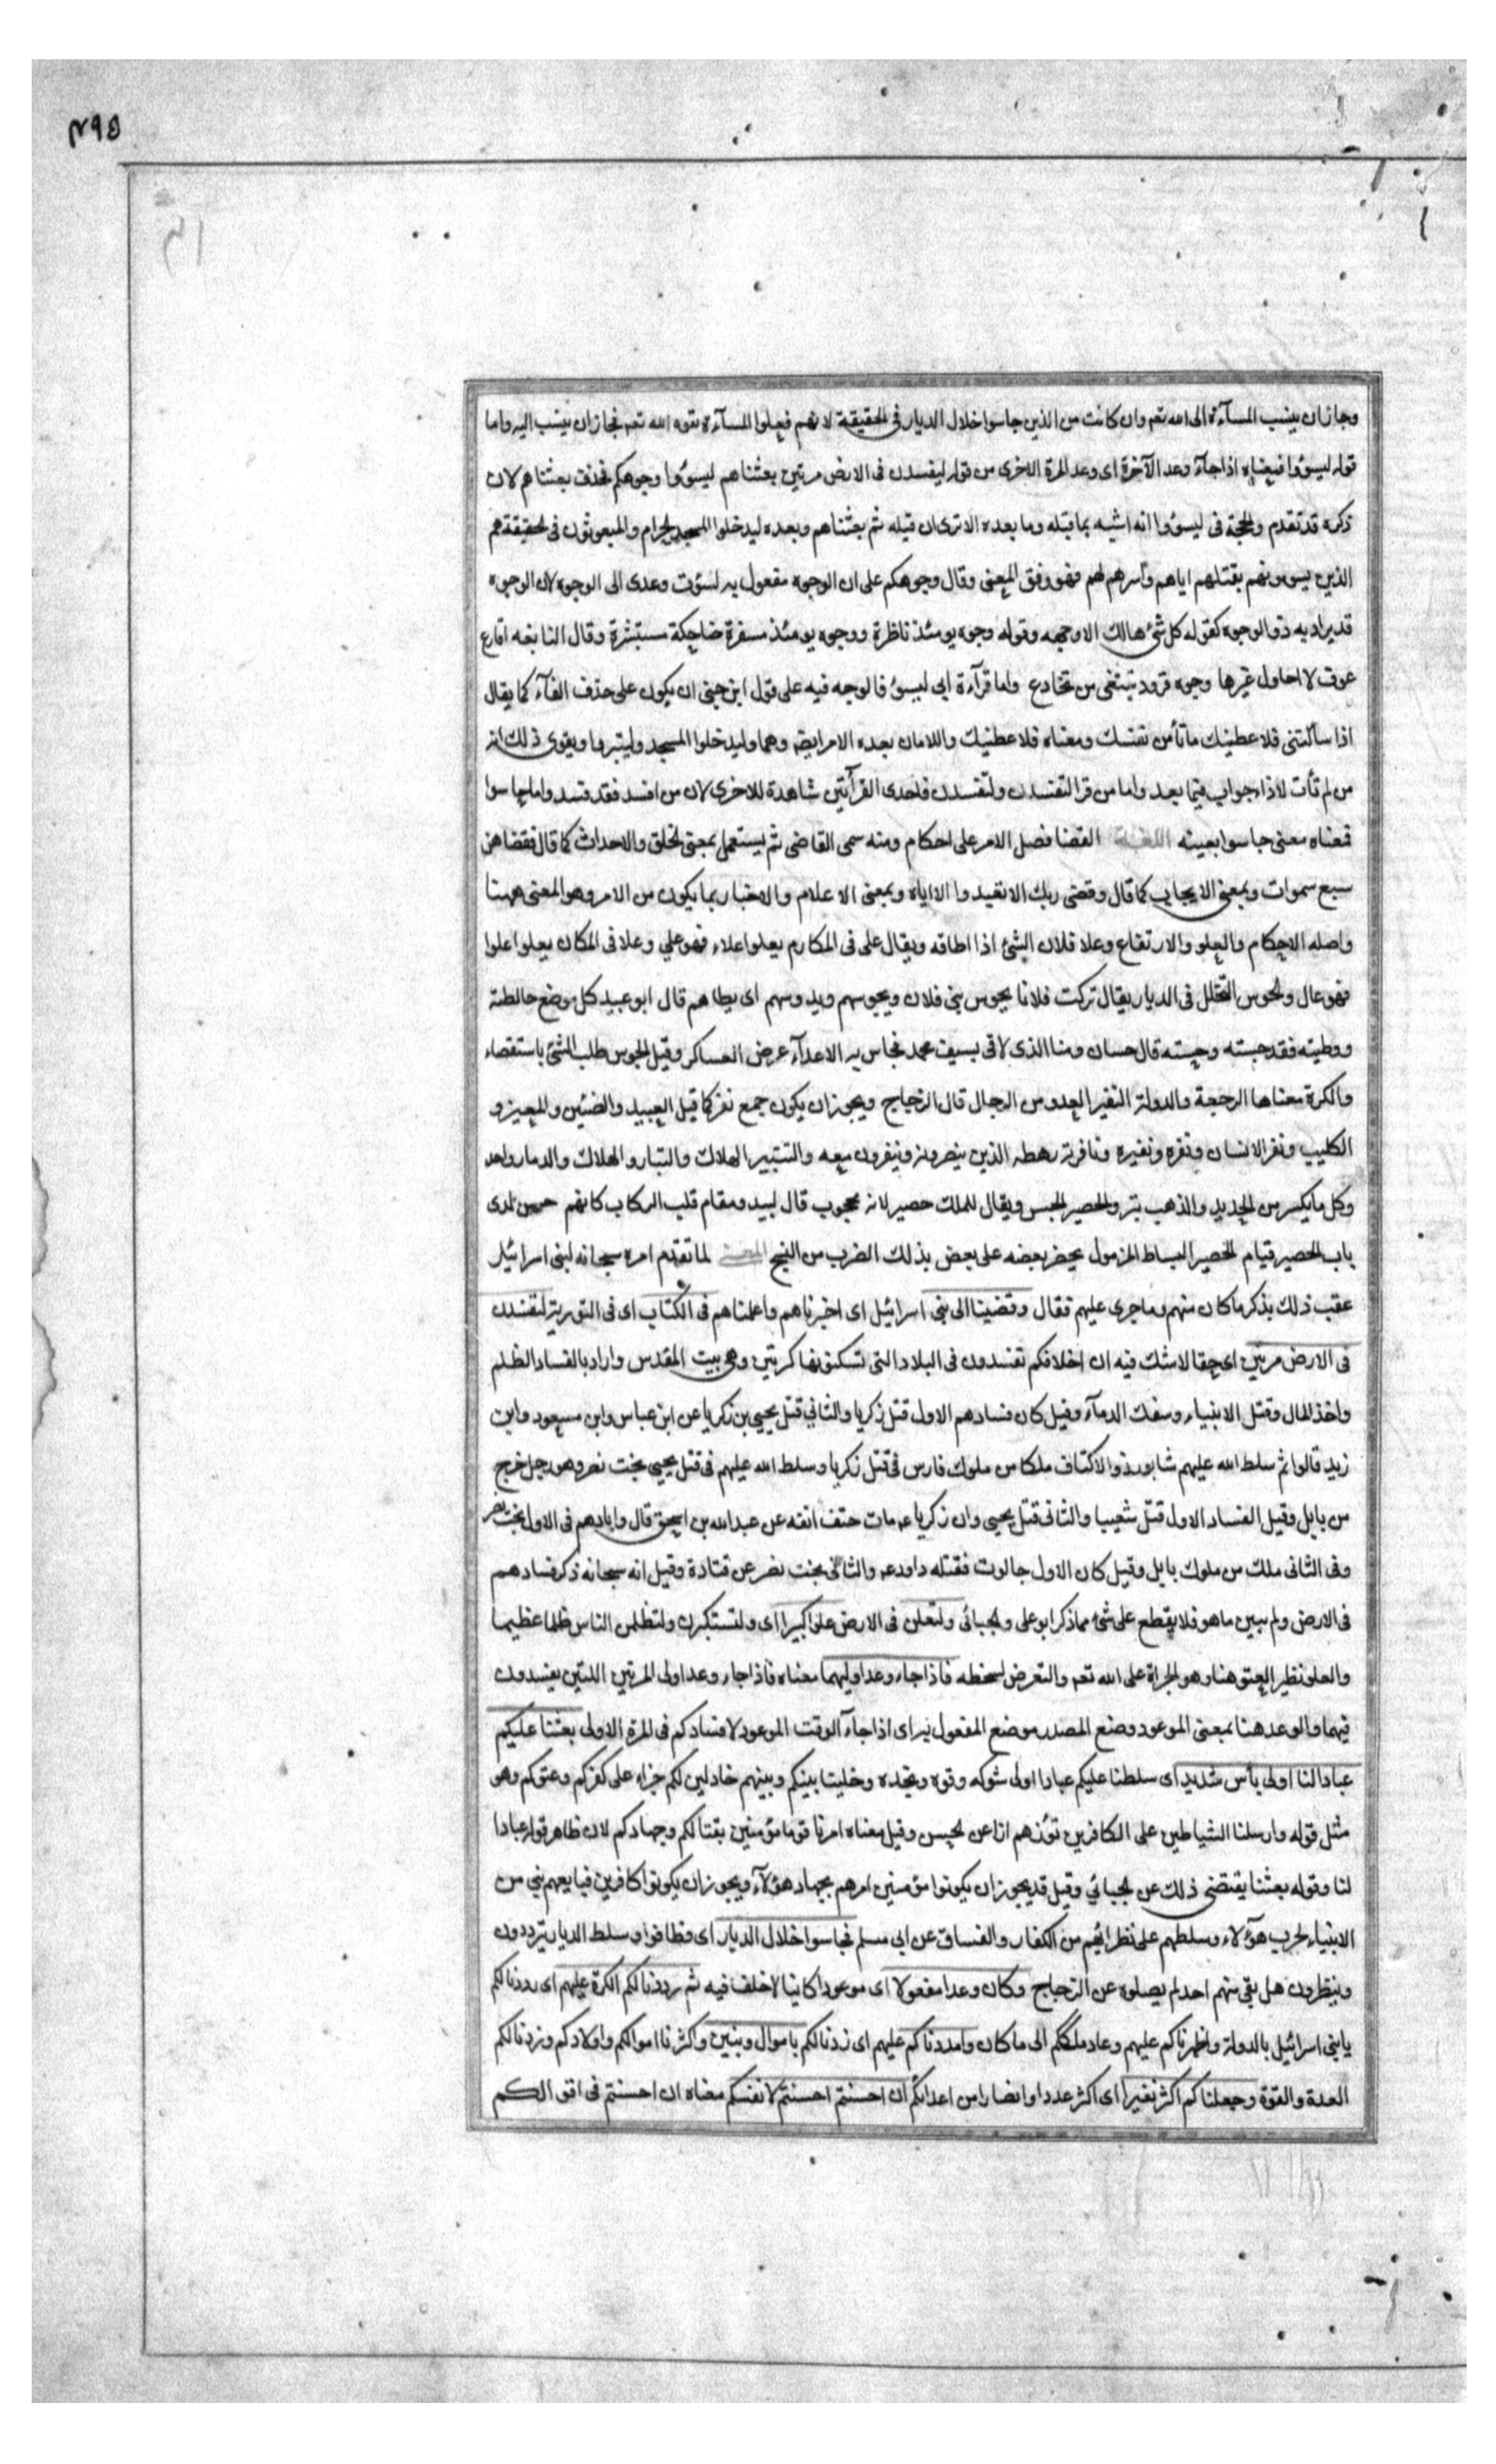 ٤٩٥
وجازان ينسب المسآءة الى الله تعم وان كانت من الذين جاسوا خلال الديار فى الحقيقة لانهم فعلوا المسآءة بقوه الله تعم فجازان ينسب اليه واما
قوله ليسؤوا فمعناه اذا جآء وعد الآخرة اى وعد المرة الاخرى من قوله ليفسدن فى الارض مرتين بعثناهم ليسؤوا وجوهكم فحذف بعثناهم لان
ذكره قد تقدم والحجة فى ليسؤوا انه اشبه بما قبله وما بعده الا ترى ان قبله ثم بعثناهم وبعده ليدخلوا المسجد الحرام والمبعوثون فى الحقيقة هم
الذين يسوءنهم بقتلهم اياهم وأسرهم لهم فهو وفق المعنى وقال وجوهكم على ان الوجوه مفعول به لسؤت وعدى الى الوجوه لان الوجوه
قد يراد به ذو الوجوه كقوله كل شئ هالك الا وجهه وقوله وجوه يومئذ ناظرة ووجوه يومئذ مسفرة ضاحكة مستبشرة وقال النابغه اقارع
عوف لا احاول غيرها وجوه قرود تبتغى من تخادع واما قرآءة ابى ليسؤ فالوجه فيه على قول ابن جنى ان يكون على حذف الفآء كما يقال
اذا سألتنى فلاعطينك ماتأمن نفسك ومعناه فلاعطينك واللامان بعده الامر ايضا وهما وليدخلوا المسجد وليتبروا ويقوى ذلك انه
من لم تأت لاذا جواب فيما بعد واما من قرا لتفسدن ولتفسدن فاحدى القرآئتين شاهدة للاخرى لان من افسد فقد فسد واما حاسوا
فمعناه معنى جاسوا بعينه اللغة القضا فصل الامر على احكام ومنه سمى القاضى ثم يستعمل بمعنى الخلق والاحداث كما قال فقضاهن
سبع سموات وبمعنى الايجاب كما قال وقضى ربك الا تعبدوا الا اياه وبمعنى الاعلام والاخبار بما يكون من الامر وهو المعنى ههنا
واصله الاحكام والعلو والارتفاع وعلا فلان الشئ اذا اطاقه ويقال على فى المكارم يعلوا علاء فهو على وعلا فى المكان يعلوا علوا
فهو عال والجوس التخلل فى الديار يقال تركت فلانا يجوس بنى فلان ويجوسهم ويدوسهم اى يطاهم قال ابو عبيد كل موضع خالطته
ووطيته فقد جسته وحسته قال حسان ومنا الذى لاقى بسيف محمد فجاس به الاعدآء عرض العساكر وقيل الجوس طلب الشئ باستقصاء
والكرة معناها الرجعة والدولة النفير العدو من الرجال قال الزجاج ويجوزان يكون جمع نفر كما قيل العبيد والضئين والمعيز و
الكليب ونفر الانسان ونفره ونفيره ونافرته رهطه الذين ينصرونه وينفرون معه والتتبير الهلاك والتبار والهلاك والدمار واحد
وكل ما يكسر من الحديد والذهب تبر والحصير الحبس ويقال للملك حصير لانه محجوب قال لبيد ومقام قلب الركاب كانهم جن لدى
باب الحصير قيام الحصير البساط المزمول يحصر بعضه على بعض بذلك الضرب من النسج المعنى لما تقدم امره سبحانه لبنى اسرائيل
عقب ذلك بذكر ما كان منهم وما جرى عليهم فقال وقضينا الى بنى اسرائيل اى اخبرناهم واعلمناهم فى الكتاب اى فى التورية لتفسدن
فى الارض مرتين اى حقا لاشك فيه ان اخلافكم تفسدون فى البلاد التى تسكنونها كرتين وهى بيت المقدس واراد بالفساد الظلم
واخذ المال وقتل الانبياء وسفك الدمآء وقيل كان فسادهم الاول قتل زكريا والثانى قتل يحيى بن زكريا عن ابن عباس وابن مسعود وابن
زيد قالوا ثم سلط الله عليهم شابور ذو الاكتاف ملكا من ملوك فارس فى قتل زكريا وسلط الله عليهم فى قتل يحيى بخت نصر وهو رجل خرج
من بابل وقيل الفساد الاول قتل شعيبا والثانى قتل يحيى وان زكريا ع مات حتف انفه عن عبد الله بن اسحق قال وابادهم فى الاول بخت نصر
وفى الثانى ملك من ملوك بابل وقيل كان الاول جالوت فقتله داود ع والثانى بخت نصر عن قتادة وقيل انه سبحانه ذكر فسادهم
فى الارض ولم يبين ما هو فلا يقطع على شئ مما ذكر ابو على والجبائى ولتعلن فى الارض علوا كبيرا اى ولتستكبرن ولتظلمن الناس ظلما عظيما
والعلو نظير العتو هنا وهو الجراة على الله تعم والتعرض لسخطه فاذا جاء وعد اوليهما معناه فاذا جاء وعد اولى المرتين اللتين يفسدون
فيهما والوعد هنا بمعنى الموعود وضع المصدر موضع المفعول به اى اذا جآء الوقت الموعود لافسادكم فى المرة الاولى بعثنا عليكم
عبادا لنا اولى بأس شديد اى سلطنا عليكم عبادا اولى شوكه وقوه ونجده وخلينا بينكم وبينهم خاذلين لكم جزاء على كفركم وعتوكم وهو
مثل قوله وارسلنا الشياطين على الكافرين تؤزهم ازا عن الحسن وقيل معناه امرنا قوما مؤمنين بقتالكم وجهادكم لان ظاهر قوله عبادا
لنا وقوله بعثنا يقتضى ذلك عن الجبائي وقيل قد يجوزان يكونوا مؤمنين امرهم بجهاد هؤلآء ويجوزان يكونوا كافرين فبايعهم نبي من
الانبياء لحرب هؤلاء وسلطهم على نظرائهم من الكفار والفساق عن ابى مسلم فجاسوا خلال الديار اى فطافوا وسلط الديار يترددون
وينظرون هل بقى منهم احد لم يصلوه عن الزجاج وكان وعدا مفعولا اى موعودا كاينا لاخلف فيه ثم رددنا لكم الكرة عليهم اى رددنا لكم
يا بنى اسرائيل بالدولة واظهرناكم عليهم وعاد ملككم الى ما كان وامددناكم عليهم اى زدنا لكم باموال وبنين واكثرنا اموالكم واولادكم وزدنا لكم
العدة والقوة وجعلناكم اكثر نفيرا اى اكثر عددا وانصارا من اعدائكم ان احسنتم احسنتم لانفسكم معناه ان احسنتم فى اقوالكم